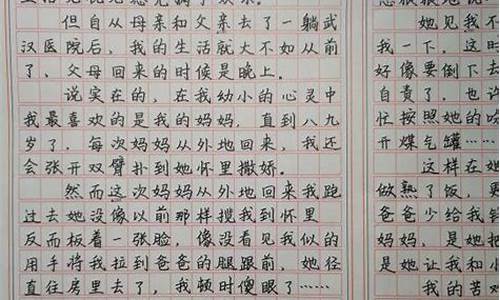 但自从母亲和父亲去了一躺武
汉医院后，我的生活就大不如从前
了，父母回来的时候是晚上。
说实在的，在我幼小的心灵中
我最喜欢的是我的妈妈，直到八九
岁了，每次妈妈从外地回来，我还
会张开双臂扑到她怀里撒娇。
然而这次妈妈从外地回来我跑
过去她没像以前那样揽我到怀里
反而板着一张脸，像没看见我似的
用手将我拉到爸爸的腿跟前，她径
直往房里去了，我顿时傻眼了……
她见我不
我一下，这时
好像要倒下去
自责了，也许
忙按照她的吩
开煤气罐……
这样在她
做熟了饭，
爸爸少给我
妈妈，是她把
是她让我和小
我的苦难